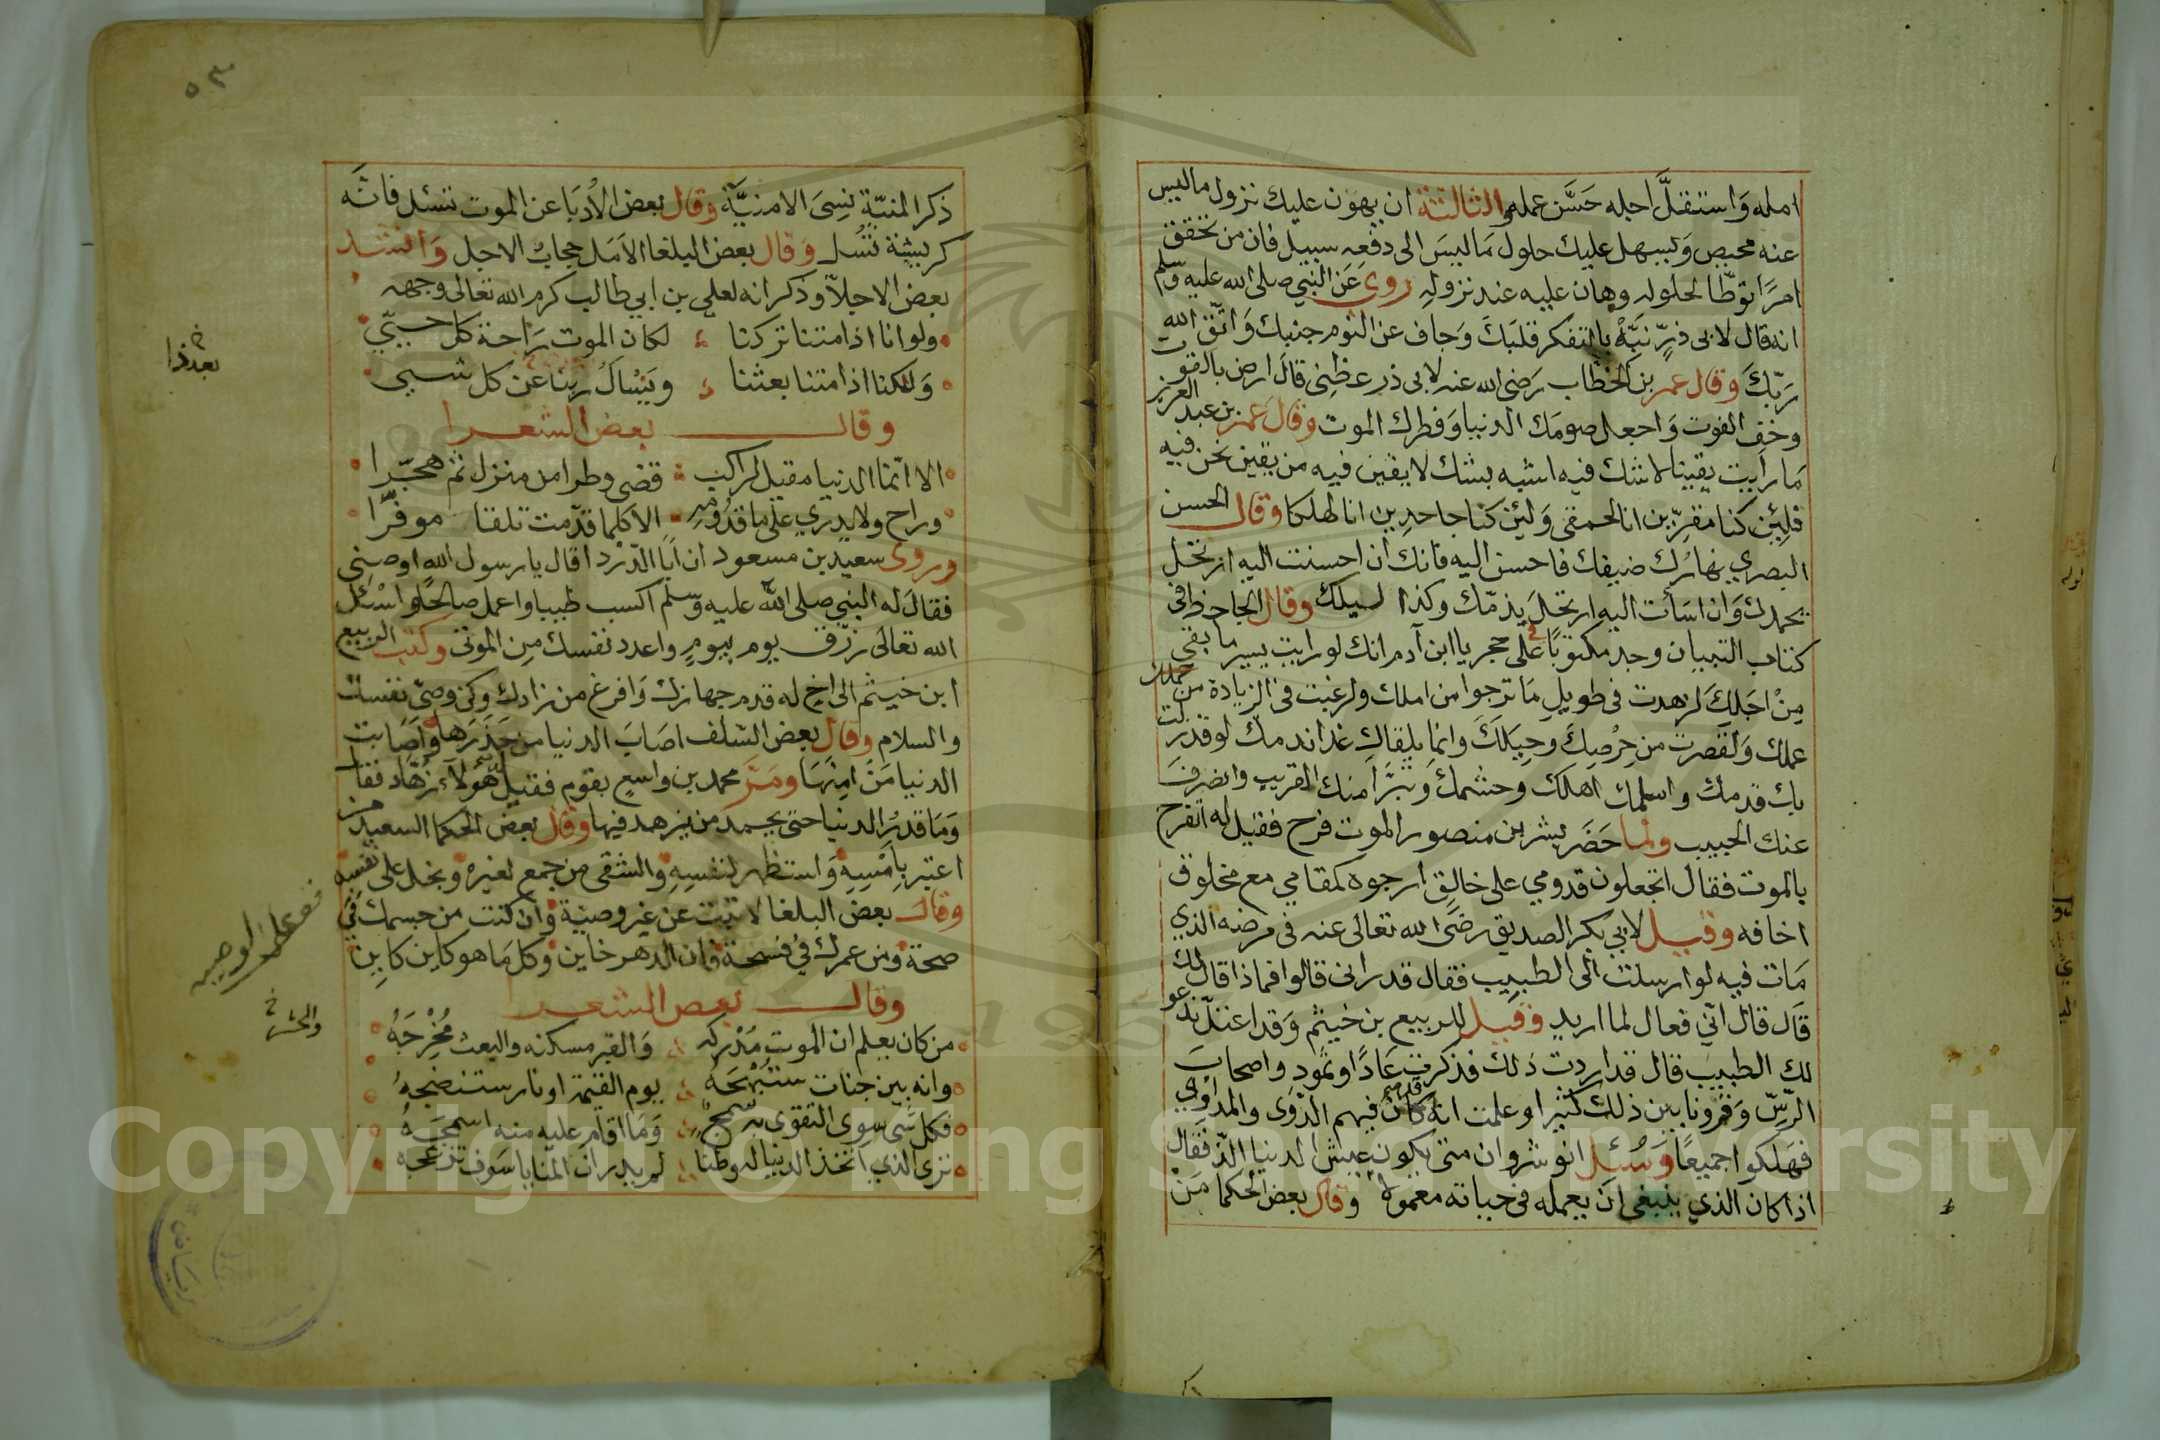 امله واستقل اجله حسن عمله والثالثة ان يهون عليك نزول ما ليس
عنه محيص ويسهل عليك حلول ما ليس الى دفعه سبيل فان من تحقق
امرا توطا لحلوله وهان عليه عند نزوله روى عن النبي صلى الله عليه وسلم
انه قال لابى ذر نبه بالتفكر قلبك وجاف عن النوم جنبك واتق الله
ربك وقال عمر بن الخطاب رضى الله عنه لابى ذر عظنى قال ارض بالقوت
وخف الفوت واجعل صومك الدنيا وفطرك الموت وقال عمر بن عبد العزيز
ما رايت يقينا لا شك فيه اشبه بشك لا يقين فيه من يقين نحن فيه
فلئن كنا مقرين انا لحمقى ولئن كنا جاحدين انا لهلكا وقال الحسن
البصري نهارك ضيفك فاحسن اليه فانك ان احسنت اليه ارتحل
بحمدك وان اسات اليه ارتحل بذمك وكذا ليلك وقال الجاحظ فى
كتاب التبيان وجد مكتوبا على حجر يا ابن آدم انك لو رايت يسير ما بقى
من اجلك لزهدت فى طويل ما ترجوا من املك ولرغبت فى الزيادة من عملك
عملك ولقصرت من حرصك وحيلك وانما يلقاك غدا ندمك لو قد زلت
بك قدمك واسلمك اهلك وحشمك وتبرا منك القريب وانصرف
عنك الحبيب ولما حضر بشر بن منصور الموت فرح فقيل له اتفرح
بالموت فقال اتجعلون قدومي على خالق ارجوه كمقامي مع مخلوق
اخافه وقيل لابي بكر الصديق رضى الله تعالى عنه فى مرضه الذي
مات فيه لو ارسلت الى الطبيب فقال قد رانى قالوا فماذا قال لك
قال قال انى فعال لما اريد وقيل للربيع بن خيثم وقد اعتل ندعو
لك الطبيب قال قد اردت ذلك فذكرت عادا وثمود واصحاب
الرس وقرونا بين ذلك كثيرا وعلمت انه كان فيهم الدوى والمداوي
فهلكوا جميعا وسئل انوشروان متى يكون عيش الدنيا الذ فقال
اذا كان الذي ينبغى ان يعمله فى حياته معمولا وقال بعض الحكما من
٥٣
ذكر المنية نسى الامنية وقال بعض الادبا عن الموت تسئل فانه
كريشة تسل وقال بعض البلغا الامل حجاب الاجل وانشد
بعض الاجلا وذكر انه لعلى بن ابي طالب كرم الله تعالى وجهه
ولو انا اذا متنا تركنا لكان الموت راحة كل حيي
ولكنا اذا متنا بعثنا ويسال ربنا عن كل شيي
وقال بعض الشعرا
الا انما الدنيا مقيل لراكب قضى وطرا من منزل ثم هجرا
وراح ولا يدري على ما قدومه الا كلما قدمت تلقا موفرا
وروى سعيد بن مسعود ان ابا الدردا قال يا رسول الله اوصنى
فقال له النبي صلى الله عليه وسلم اكسب طيبا واعمل صالحا واسئل
الله تعالى رزق يوم بيوم واعدد نفسك من الموتى وكتب الربيع
ابن خيثم الى اخ له قدم جهازك وافرغ من زادك وكن وصى نفسك
والسلام وقال بعض السلف اصاب الدنيا من حذرها واصابت
الدنيا من امنها ومر محمد بن واسع بقوم فقيل هولآء زهاد فقال
وما قدر الدنيا حتى يحمد من يزهد فيها وقال بعض الحكما السعيد من
اعتبر بامسه واستظهر لنفسه والشقى من جمع لغيره وبخل على نفسه
وقال بعض البلغا لا تبت عن غير وصية وان كنت من جسمك فى
صحة ومن عمرك فى فسحة فان الدهر خاين وكل ما هو كاين كاين
وقال بعض الشعرا
من كان يعلم ان الموت مدركه والقبر مسكنه والبعث مخرجه
وانه بين جنات ستبهجه يوم القيمة او نار ستنضجه
فكل شى سوى التقوى به سمج وما اقام عليه منه اسمجه
ترى الذي اتخذ الدنيا له وطنا لم يدر ان المنايا سوف تزعجه
بعد ذا
والحشر
Copyright © King Saud University